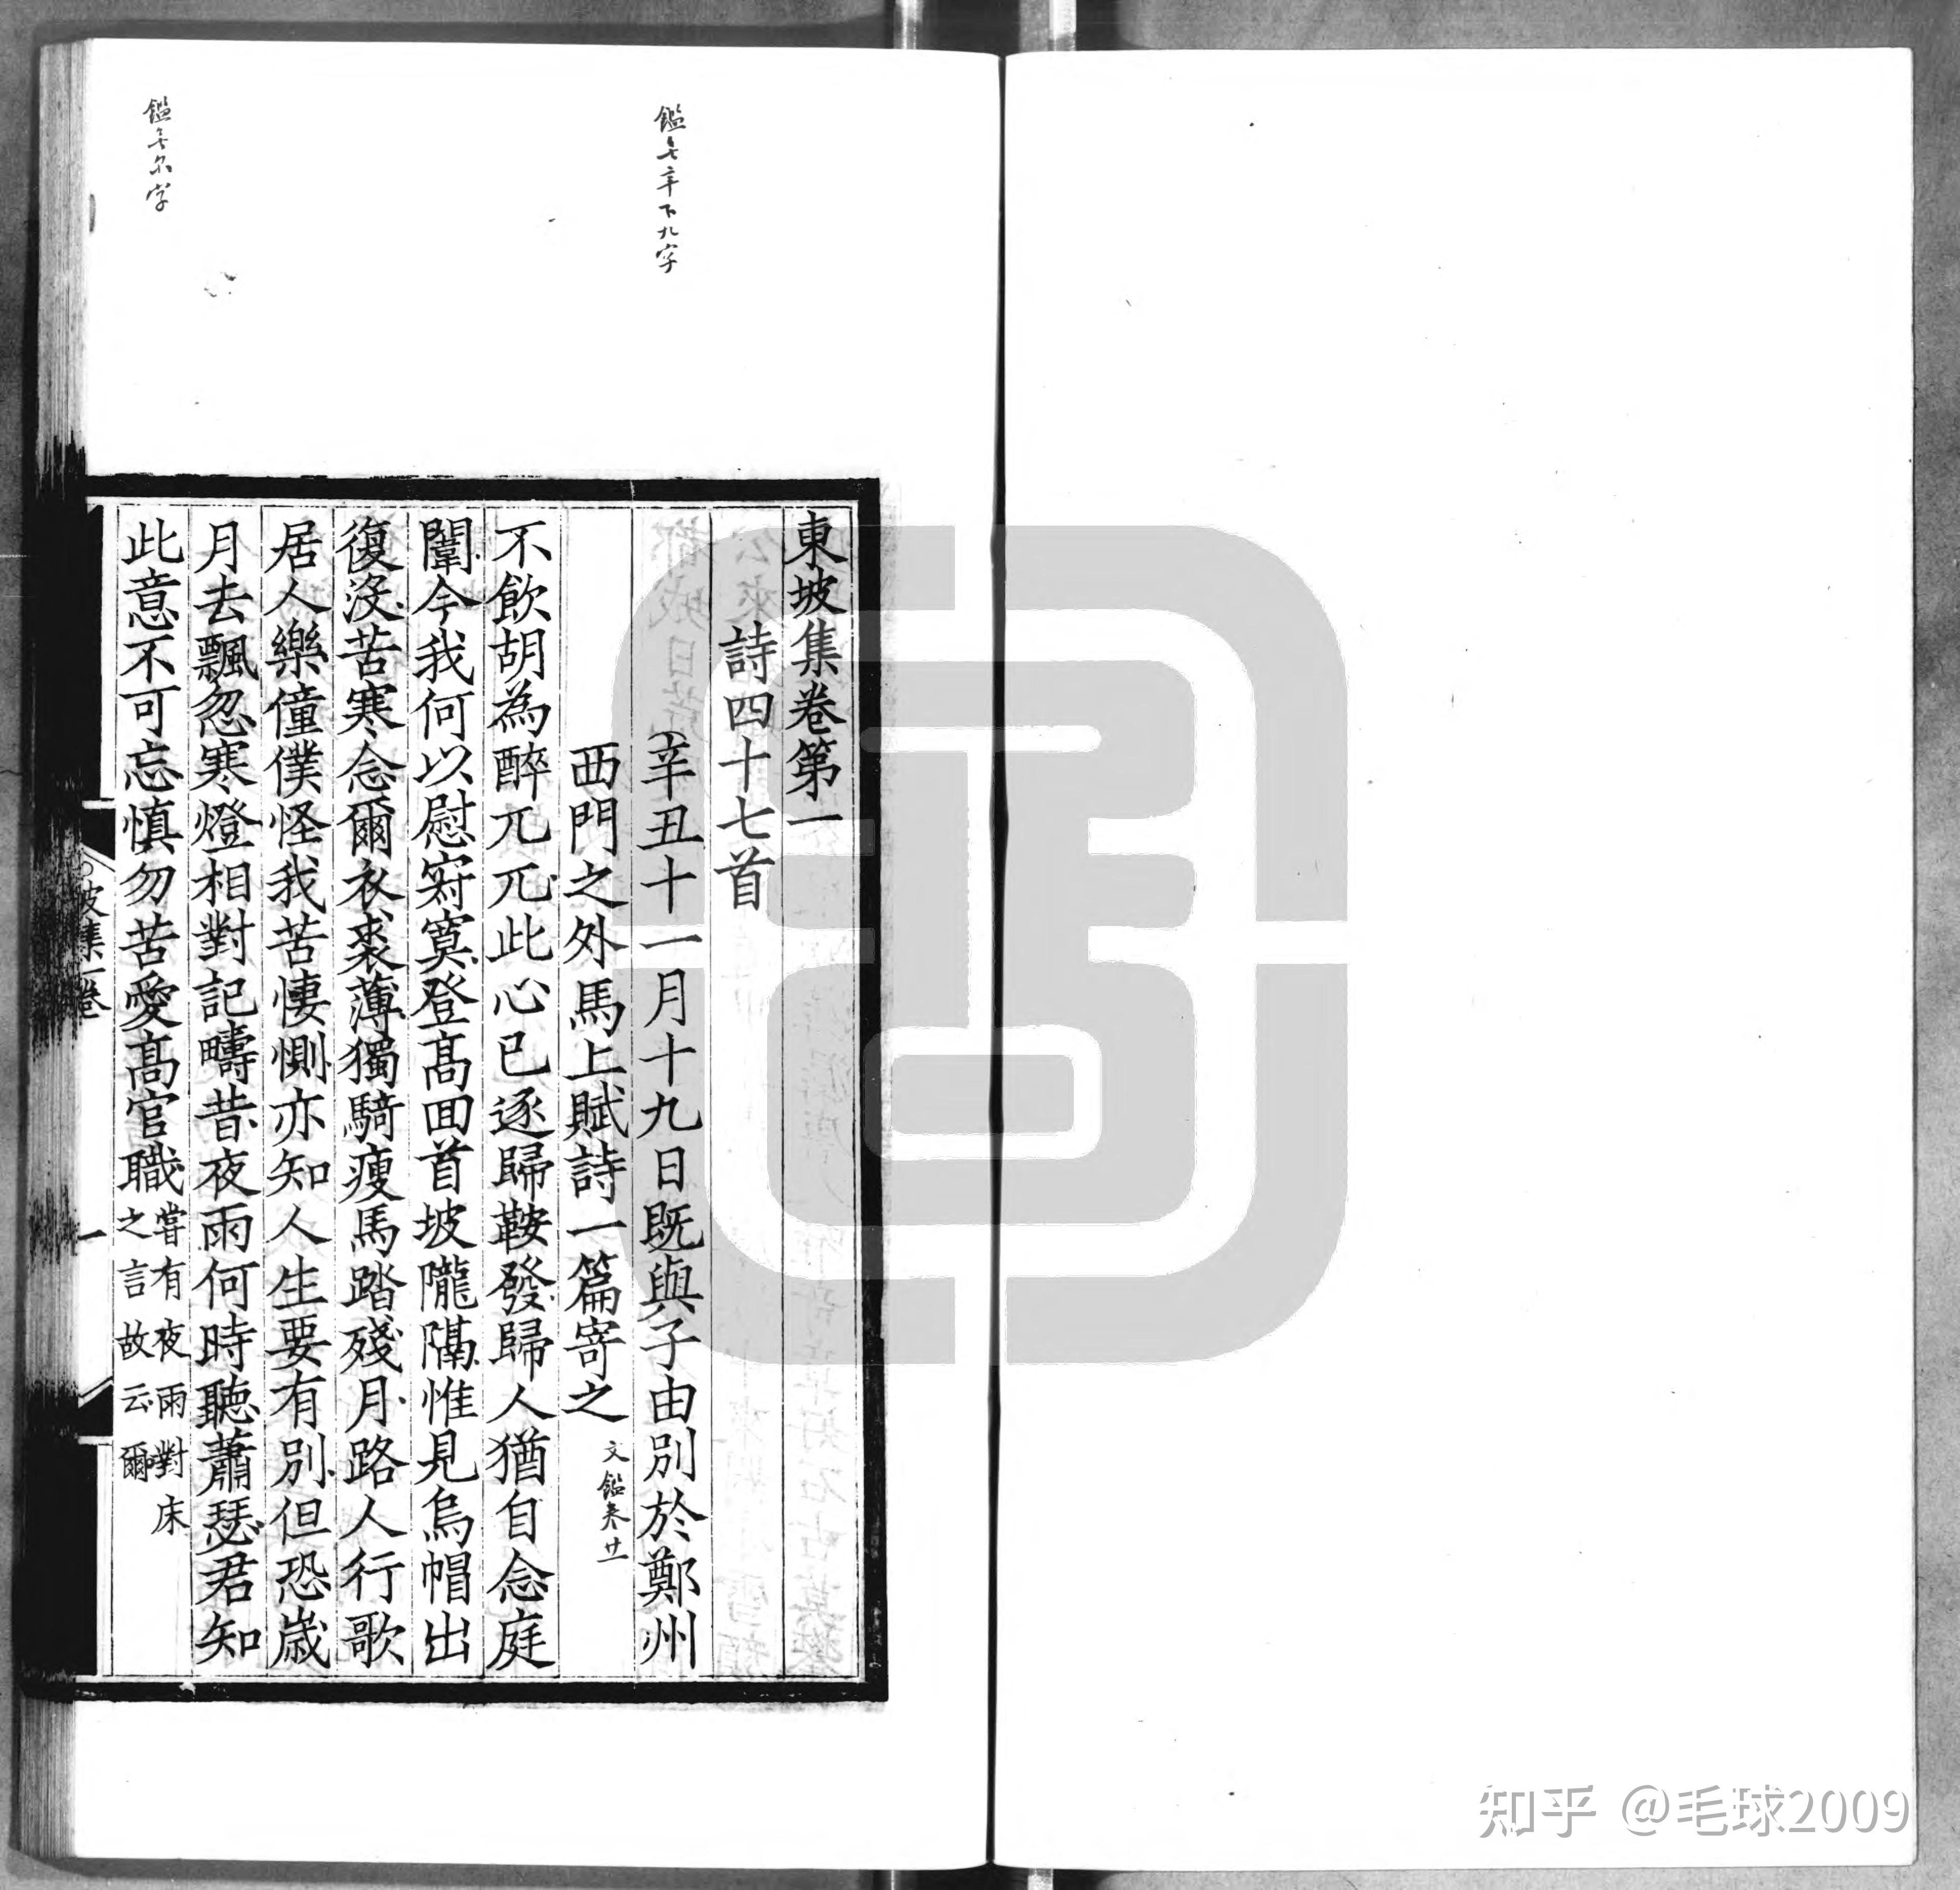 東坡集卷第一
詩四十七首
辛丑十一月十九日既與子由別於鄭州
西門之外馬上賦詩一篇寄之
文鑑卷廿一
不飲胡為醉兀兀此心已逐歸鞍發歸人猶自念庭
闈今我何以慰寂寞登高回首坡隴隔惟見烏帽出
復沒苦寒念爾衣裘薄獨騎瘦馬踏殘月路人行歌
居人樂僮僕怪我苦悽惻亦知人生要有別但恐歲
月去飄忽寒燈相對記疇昔夜雨何時聽蕭瑟君知
此意不可忘慎勿苦愛高官職嘗有夜雨對床之言故云爾
坡集一卷
一
鑑无辛下九字
鑑无尔字
知乎 @毛球2009